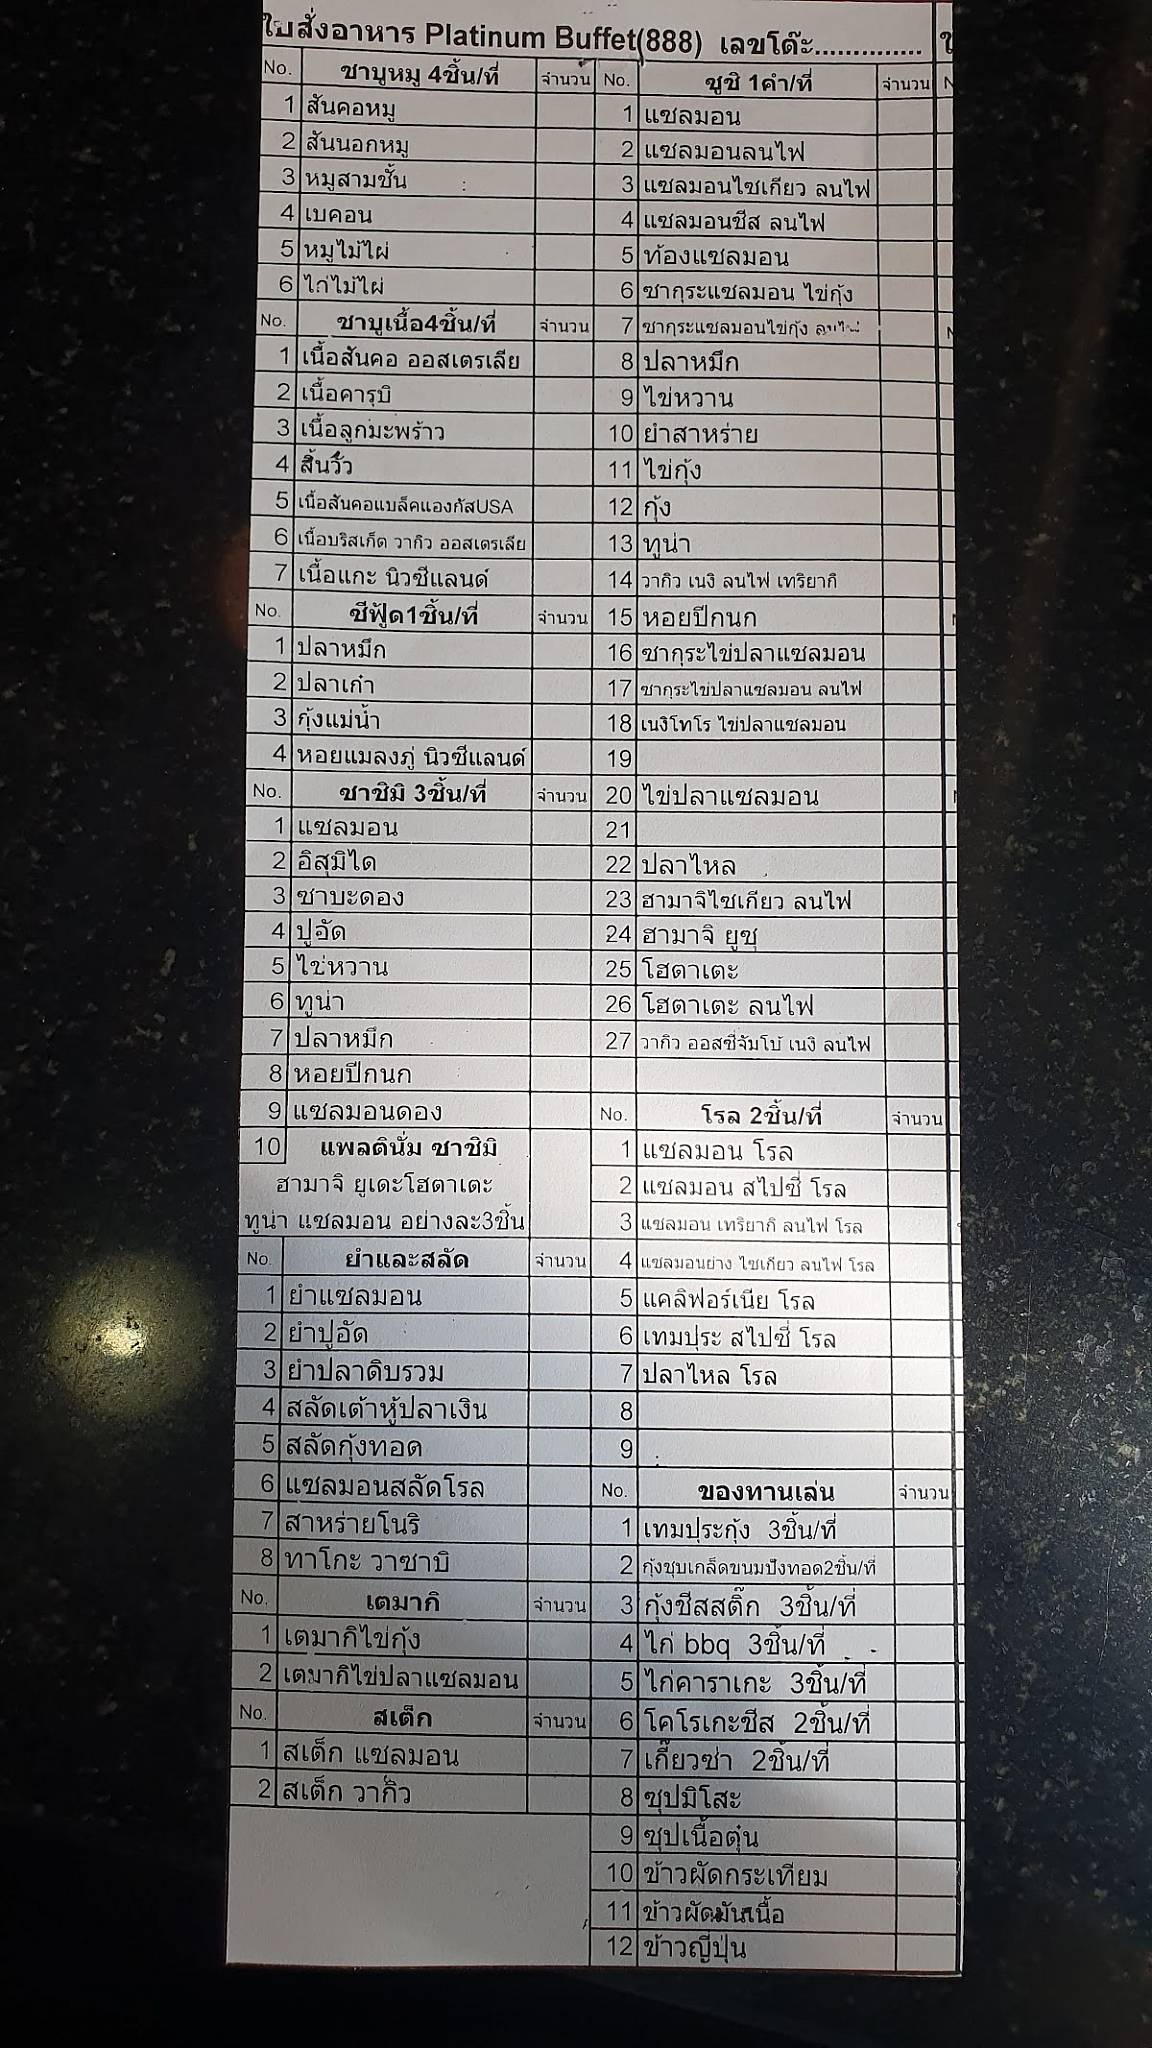 ใบสั่งอาหาร Platinum Buffet(888) เลขโต๊ะ..............
No. ชาบูหมู 4ชิ้น/ที่ จำนวน
1 สันคอหมู
2 สันนอกหมู
3 หมูสามชั้น
4 เบคอน
5 หมูไม้ไผ่
6 ไก่ไม้ไผ่
No. ชาบูเนื้อ4ชิ้น/ที่ จำนวน
1 เนื้อสันคอ ออสเตรเลีย
2 เนื้อคารุบิ
3 เนื้อลูกมะพร้าว
4 ลิ้นวัว
5 เนื้อสันคอแบล็คแองกัสUSA
6 เนื้อบริสเก็ต วากิว ออสเตรเลีย
7 เนื้อแกะ นิวซีแลนด์
No. ซีฟู้ด1ชิ้น/ที่ จำนวน
1 ปลาหมึก
2 ปลาเก๋า
3 กุ้งแม่น้ำ
4 หอยแมลงภู่ นิวซีแลนด์
No. ซาซิมิ 3ชิ้น/ที่ จำนวน
1 แซลมอน
2 อิสุมิได
3 ซาบะดอง
4 ปูอัด
5 ไข่หวาน
6 ทูน่า
7 ปลาหมึก
8 หอยปีกนก
9 แซลมอนดอง
10 แพลตินั่ม ซาชิมิ
ฮามาจิ ยูเดะโฮตาเตะ
ทูน่า แซลมอน อย่างละ3ชิ้น
No. ยำและสลัด จำนวน
1 ยำแซลมอน
2 ยำปูอัด
3 ยำปลาดิบรวม
4 สลัดเต้าหู้ปลาเงิน
5 สลัดกุ้งทอด
6 แซลมอนสลัดโรล
7 สาหร่ายโนริ
8 ทาโกะ วาซาบิ
No. เตมากิ จำนวน
1 เตมากิไข่กุ้ง
2 เตมากิไข่ปลาแซลมอน
No. สเต็ก จำนวน
1 สเต็ก แซลมอน
2 สเต็ก วากิว
No. ซูชิ 1คำ/ที่ จำนวน
1 แซลมอน
2 แซลมอนลนไฟ
3 แซลมอนไซเกียว ลนไฟ
4 แซลมอนชีส ลนไฟ
5 ท้องแซลมอน
6 ซากุระแซลมอน ไข่กุ้ง
7 ซากุระแซลมอนไข่กุ้ง ลนไฟ
8 ปลาหมึก
9 ไข่หวาน
10 ยำสาหร่าย
11 ไข่กุ้ง
12 กุ้ง
13 ทูน่า
14 วากิว เนงิ ลนไฟ เทริยากิ
15 หอยปีกนก
16 ซากุระไข่ปลาแซลมอน
17 ซากุระไข่ปลาแซลมอน ลนไฟ
18 เนงิโทโร ไข่ปลาแซลมอน
19
20 ไข่ปลาแซลมอน
21
22 ปลาไหล
23 ฮามาจิไซเกียว ลนไฟ
24 ฮามาจิ ยูซุ
25 โฮตาเตะ
26 โฮตาเตะ ลนไฟ
27 วากิว ออสซี่จัมโบ้ เนงิ ลนไฟ
No. โรล 2ชิ้น/ที่ จำนวน
1 แซลมอน โรล
2 แซลมอน สไปซี่ โรล
3 แซลมอน เทริยากิ ลนไฟ โรล
4 แซลมอนย่าง ไซเกียว ลนไฟ โรล
5 แคลิฟอร์เนีย โรล
6 เทมปุระ สไปซี่ โรล
7 ปลาไหล โรล
8
9
No. ของทานเล่น จำนวน
1 เทมปุระกุ้ง 3ชิ้น/ที่
2 กุ้งชุบเกล็ดขนมปังทอด2ชิ้น/ที่
3 กุ้งชีสสติ๊ก 3ชิ้น/ที่
4 ไก่ bbq 3ชิ้น/ที่
5 ไก่คาราเกะ 3ชิ้น/ที่
6 โคโรเกะชีส 2ชิ้น/ที่
7 เกี๊ยวซ่า 2ชิ้น/ที่
8 ซุปมิโสะ
9 ซุปเนื้อตุ๋น
10 ข้าวผัดกระเทียม
11 ข้าวผัดมันเนื้อ
12 ข้าวญี่ปุ่น